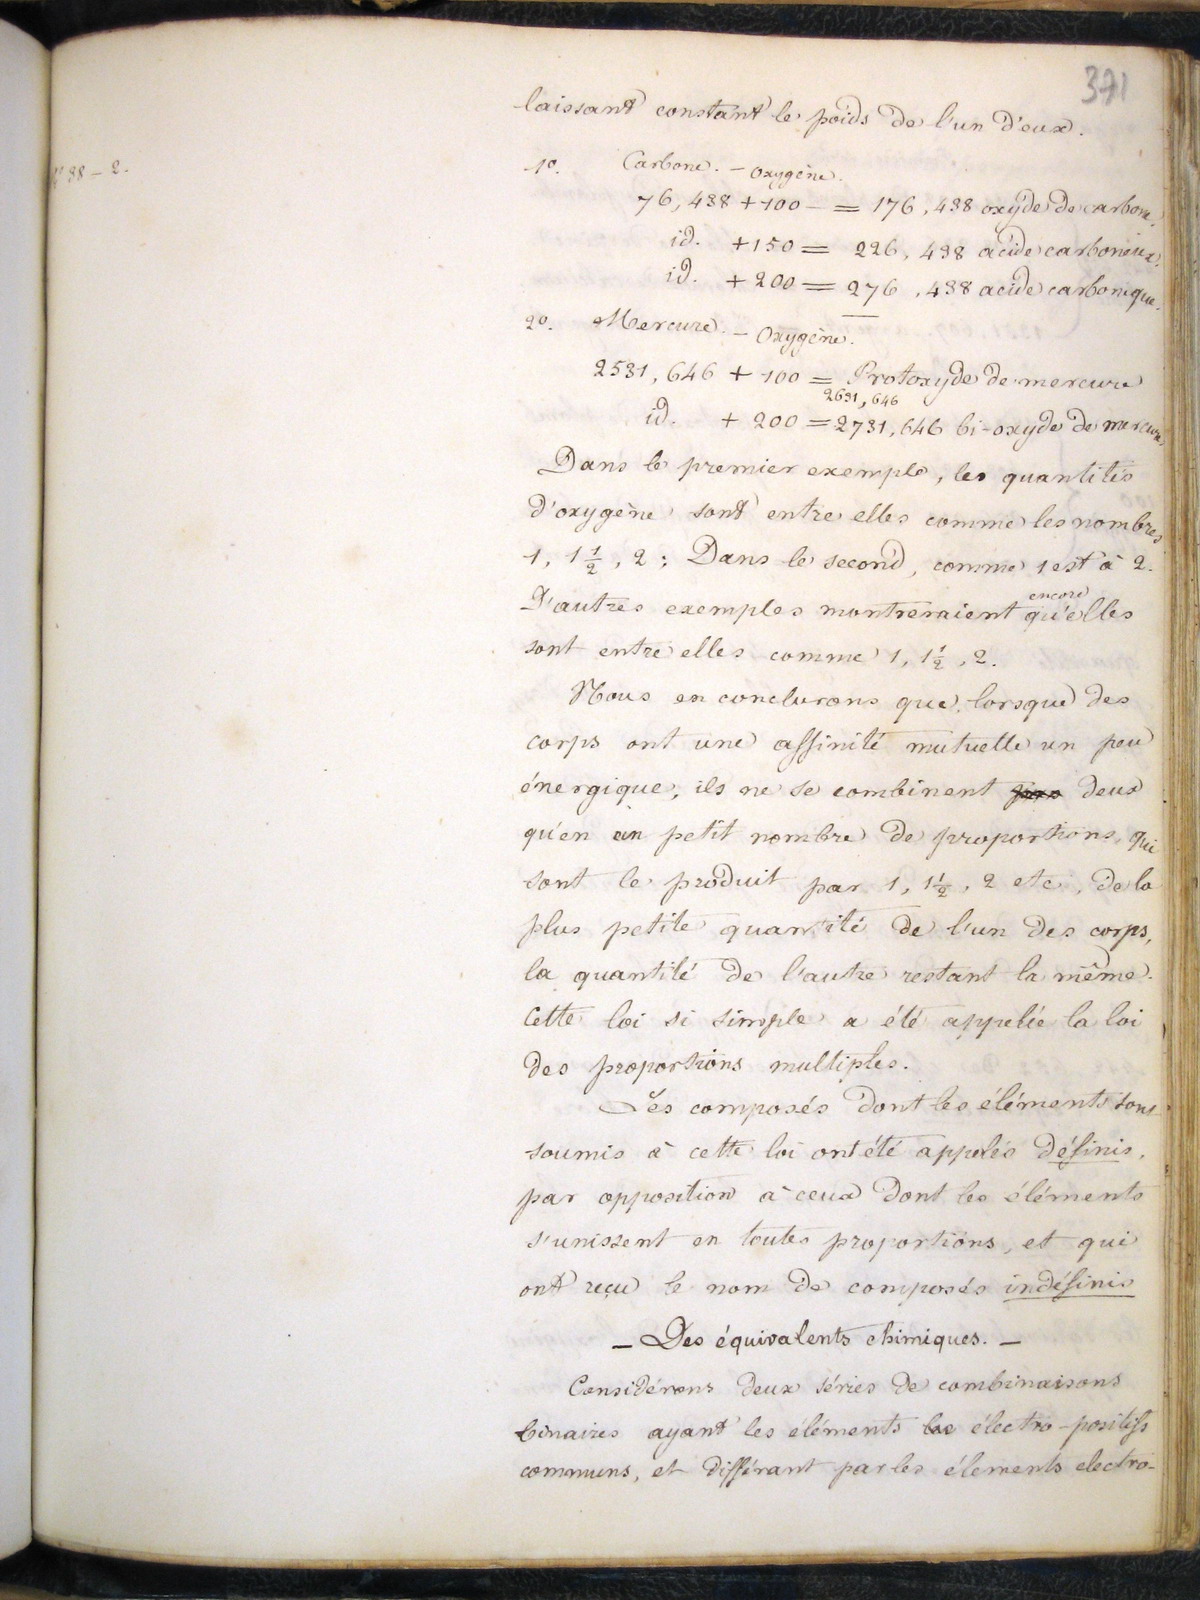 371
laissant constant le poids de l'un d'eux.
38 - 2.
1º. Carbone. - Oxygène.
76,438 + 100 - = 176,438 oxyde de carbone.
id. + 150 = 226,438 acide carboneux.
id. + 200 = 276,438 acide carbonique.
2º. Mercure. - Oxygène.
2531,646 + 100 = Protoxyde de mercure
2631,646
id. + 200 = 2731,646 bi-oxyde de mercure
Dans le premier exemple, les quantités
d'oxygène sont entre elles comme les nombres
1, 1 1/2, 2 ; Dans le second, comme 1 est à 2.
encore
D'autres exemples montreraient qu'elles
sont entre elles comme 1, 1 1/2, 2.
Nous en conclurons que, lorsque des
corps ont une affinité mutuelle un peu
énergique, ils ne se combinent deux
qu'en un petit nombre de proportions, qui
sont le produit par 1, 1 1/2, 2 etc, de la
plus petite quantité de l'un des corps,
la quantité de l'autre restant la même.
Cette loi si simple a été appelée la loi
des proportions multiples.
Les composés dont les éléments sont
soumis à cette loi ont été appelés définis,
par opposition à ceux dont les éléments
s'unissent en toutes proportions, et qui
ont reçu le nom de composés indéfinis
- Des équivalents chimiques. -
Considérons deux séries de combinaisons
binaires ayant les éléments électro-positifs
communs, et différant par les élements electro-